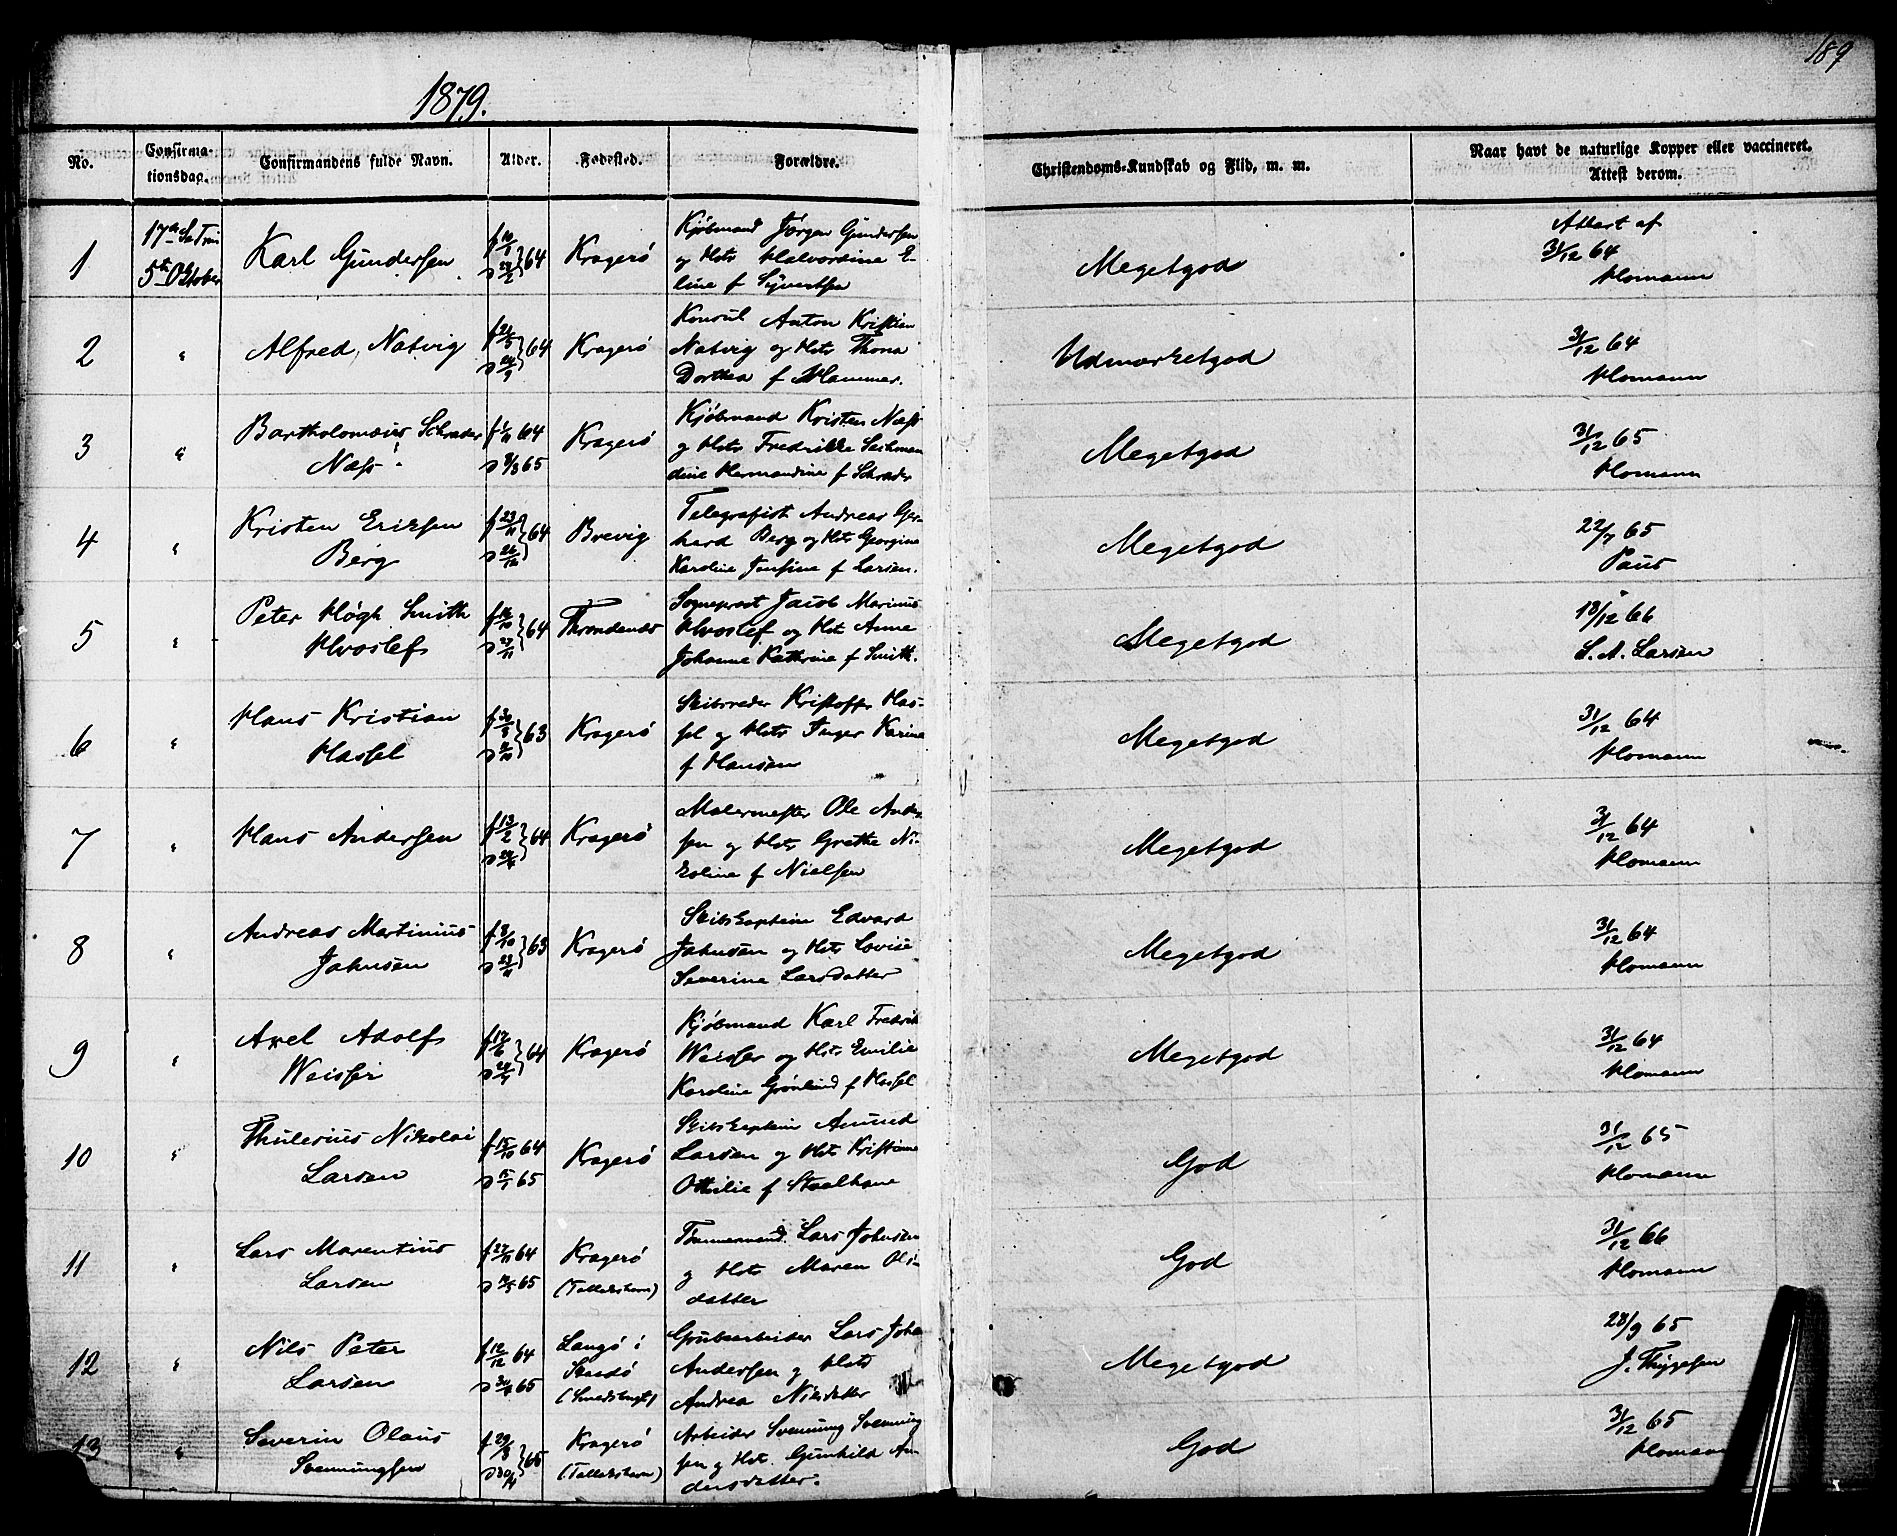 189
1879.
No.
Confirma-
tionsdag.
Confirmandens fulde Navn.
Alder.
Fødested.
Forældre.
Christendoms-Kundskab og Flid, m. m.
Naar havt de naturlige Kopper eller vaccineret.
Attest derom.
1
5te Oktober
Karl Gundersen
64
Kragerø
Kjøbmand Jørgen Gundersen
og Hst Halvordine E-
line f Syvertsen
Megetgod
Attest af
31/12 64
Homann
2
"
Alfred Natvig
64
Kragerø
Konsul Anton Kristian
Natvig og Hst Thona
Dorthea f Hammer.
Udmærketgod
31/12 64
Homann
3
"
Bartholomæus Schrader
Næss
f 1/11 64
65
Kragerø
Kjøbmand Kristen Næss
og Hst Fredrikke
Hermandine f Schrader
Megetgod
31/12 65
Homann
4
"
Kristen Eriksen
Berg
f 23/11
d 26/12 } 64
Brevig
Telegrafist Andreas Ger-
hard Berg og Hst Georgine
Karoline Jonsine f Larsen.
Megetgod
22/7 65
Paus
5
"
Peter Høgh Smith
Hvoslef
64
Throndenæs
Sogneprest Jacob Marinus
Hvoslef og Hst Anne
Johanne Kathrine f Smith.
Megetgod
18/12 66
S. A. Larsen
6
"
Hans Kristian
Hassel
63
Kragerø
Skibsreder Kristoffer Has-
sel og Hst Inger Karine
f Hansen
Megetgod
31/12 64
Homann
7
"
Hans Andersen
f 13/2
64
Kragerø
Malermester Ole Ander
sen og Hst Grethe Ni-
koline f Nielsen
Megetgod
31/12 64
Homann
8
"
Andreas Martinius
Johnsen
63
Kragerø
Skibskaptein Edvard
Johnsen og Hst Lovise
Severine Larsdatter
Megetgod
31/12 64
Homann
9
"
Axel Adolf
Weisser
64
Kragerø
Kjøbmand Karl Fredrik
Weisser og Hst Emilie
Karoline Grønlund f Hassel
Megetgod
31/12 64
Homann
10
"
Thulesius Nikolai
Larsen
f 15/10 64
65
Kragerø
Skibskaptein Amund
Larsen og Hst Kristiane
Ottilie f Staalhane
God
31/12 65
Homann
11
"
Lars Marentius
Larsen
f 27/11 64
65
Kragerø
(Tallakshavn)
Tømmermand Lars Johnsen
og Hst Maren Ols-
datter
God
31/12 66
Homann
12
"
Nils Peter
Larsen
f 12/12 64
65
Langø i
Skaadø
(Smedsbugt)
Grubearbeider Lars Joha
Andersen og Hst
Andrea Nilsdatter
Megetgod
28/9 65
J. Thygesen
13
"
Severin Olaus
Svenningsen
65
Kragerø
(Tallakshavn)
Arbeider Svenning Svenning
sen og Hst. Gunhild An-
dersdatter.
God
31/12 65
Homann